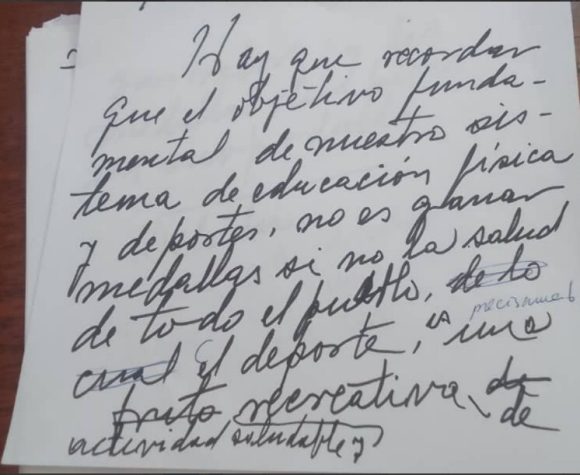 Hay que recordar
que el objetivo funda-
mental de nuestro sis-
tema de educación física
y deportes, no es ganar
medallas si no la salud
de todo el pueblo, de lo
cual el deporte, es una
fruto recreativa, de
de
actividad saludable y